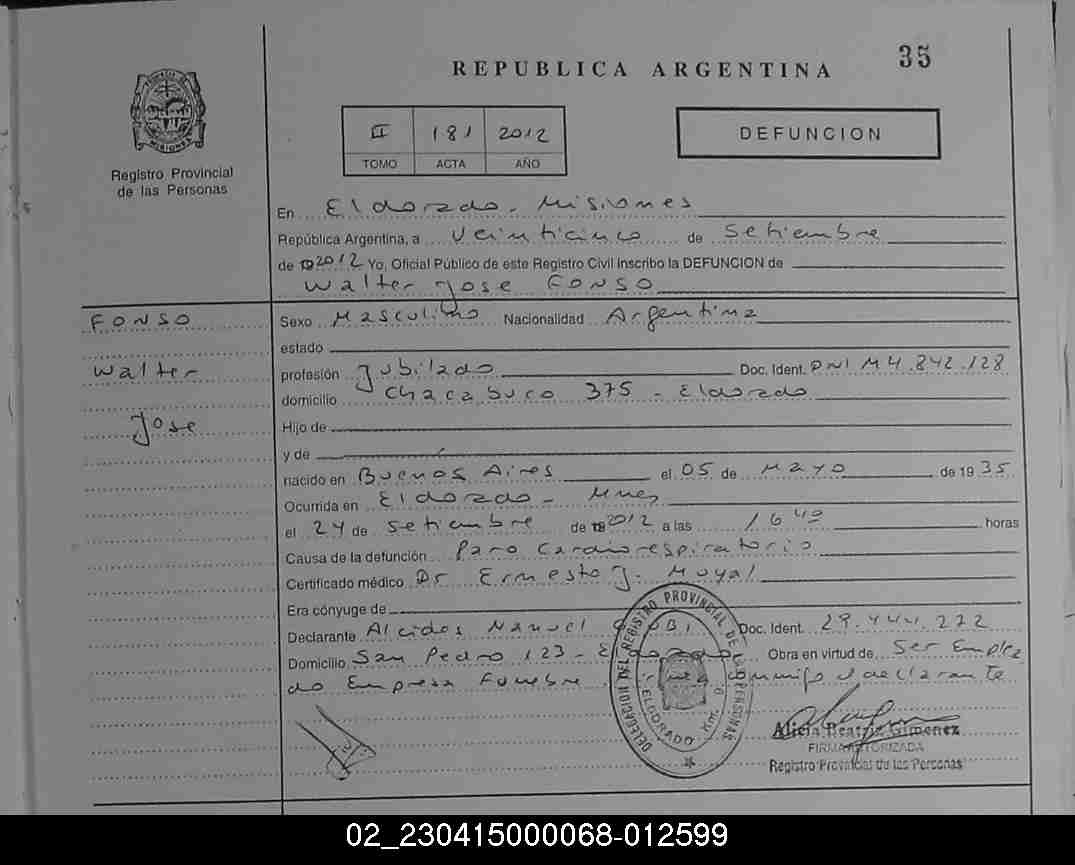 35
REPUBLICA ARGENTINA
MISIONES
Registro Provincial
de las Personas
II 181 2012
TOMO ACTA AÑO
DEFUNCION
En Eldorado - Misiones
República Argentina, a Veinticinco de Setiembre
de 2012 Yo, Oficial Público de este Registro Civil inscribo la DEFUNCION de
Walter Jose FONSO
FONSO
Walter
Jose
Sexo Masculino Nacionalidad Argentina
estado
profesión Jubilado Doc. Ident. DNI M4.842.128
domicilio Chacabuco 375 - Eldorado
Hijo de
y de
nacido en Buenos Aires el 05 de Mayo de 1935
Ocurrida en Eldorado - Mnes
el 24 de Setiembre de 2012 a las 16 40 horas
Causa de la defunción Paro Cardiorespiratorio
Certificado médico Dr Ernesto J. Moyal
Era cónyuge de
Declarante Alcides Manuel Doc. Ident. 29.444.272
Domicilio San Pedro 123 - Eldorado Obra en virtud de Ser Emplea
do Empresa Funebre conmigo el declarante
DELEGACION DEL REGISTRO PROVINCIAL DE LAS PERSONAS
ELDORADO Km.
Alicia Beatriz Gimenez
FIRMA AUTORIZADA
Registro Provincial de las Personas
02_230415000068-012599